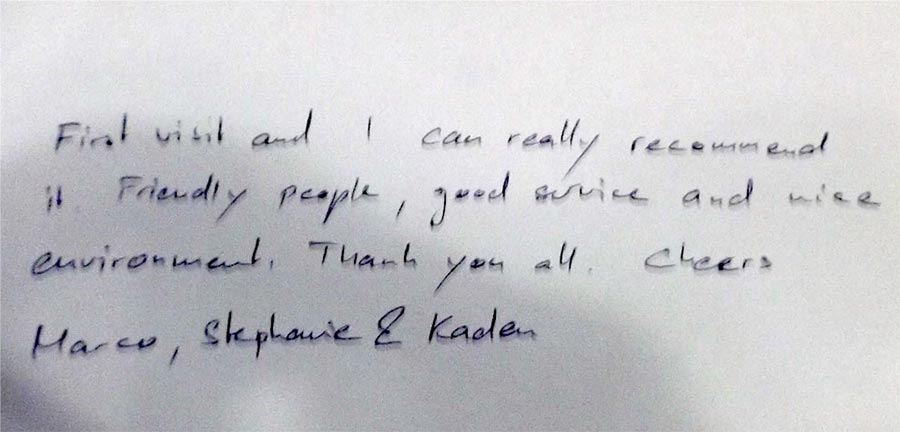 First visit and I can really recommend
it. Friendly people, good service and nice
environment. Thank you all. Cheers
Marco, Stephanie & Kaden